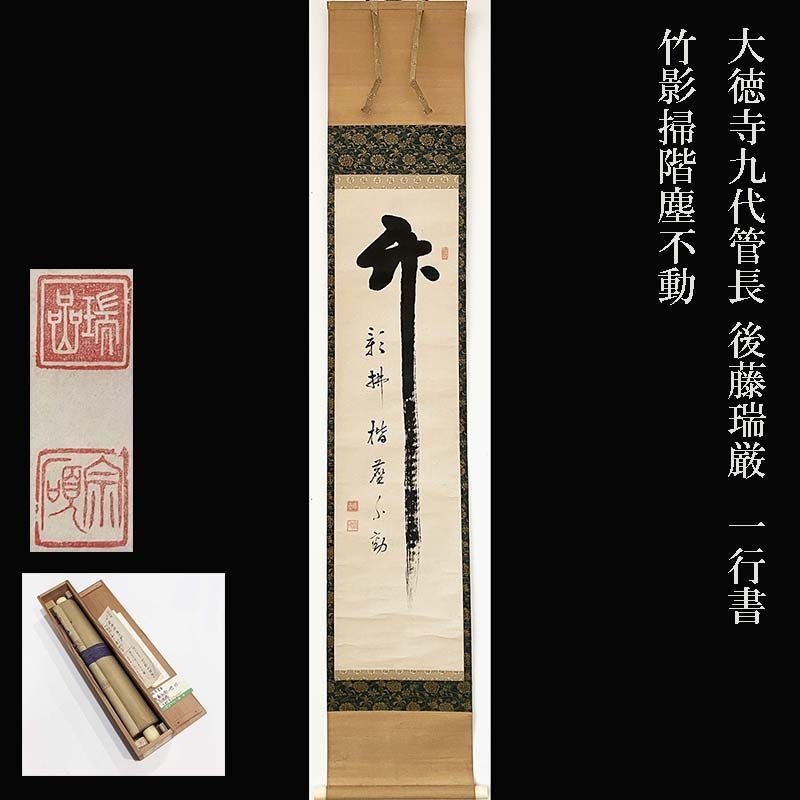 大徳寺九代管長 後藤瑞厳 一行書
竹影掃階塵不動
竹
影拂階塵不動
瑞巌
宗碩